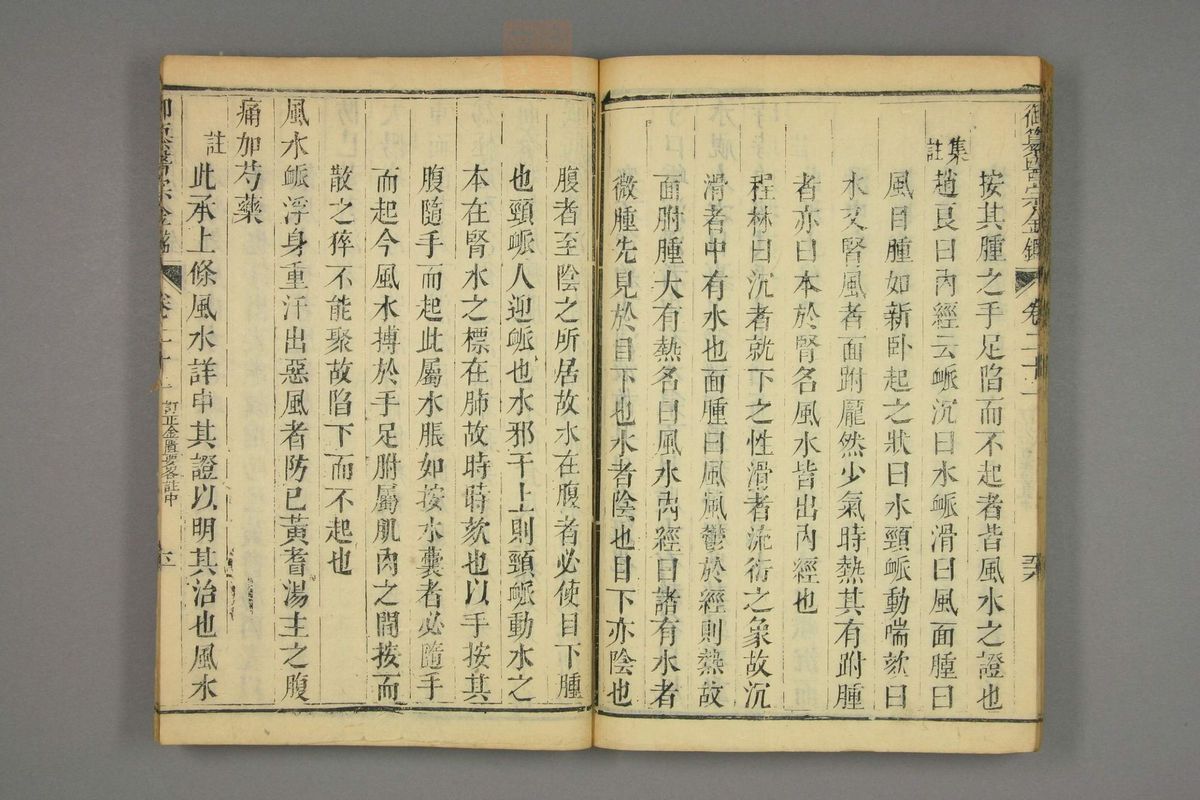 御纂醫宗金鑑 卷二十一
按其腫之手足陷而不起者皆風水之證也
集註
趙良曰內經云衇沉曰水衇滑曰風面腫曰
風目腫如新卧起之狀曰水頸衇動喘欬曰
水又腎風者面跗龐然少氣時熱其有跗腫
者亦曰本於腎名風水皆出內經也
程林曰沉者就下之性滑者流衍之象故沉
滑者中有水也面腫曰風風鬱於經則熱故
面胕腫大有熱名曰風水內經曰諸有水者
微腫先見於目下也水者陰也目下亦陰也
腹者至陰之所居故水在腹者必使目下腫
也頸衇人迎衇也水邪干上則頸衇動水之
本在腎水之標在肺故時時欬也以手按其
腹隨手而起此屬水脹如按水囊者必隨手
而起今風水搏於手足胕屬肌肉之間按而
散之猝不能聚故陷下而不起也
風水衇浮身重汗出惡風者防已黃耆湯主之腹
痛加芍藥
註
此承上條風水詳申其證以明其治也風水
御纂醫宗金鑑 卷二十一 訂正金匱要畧註中